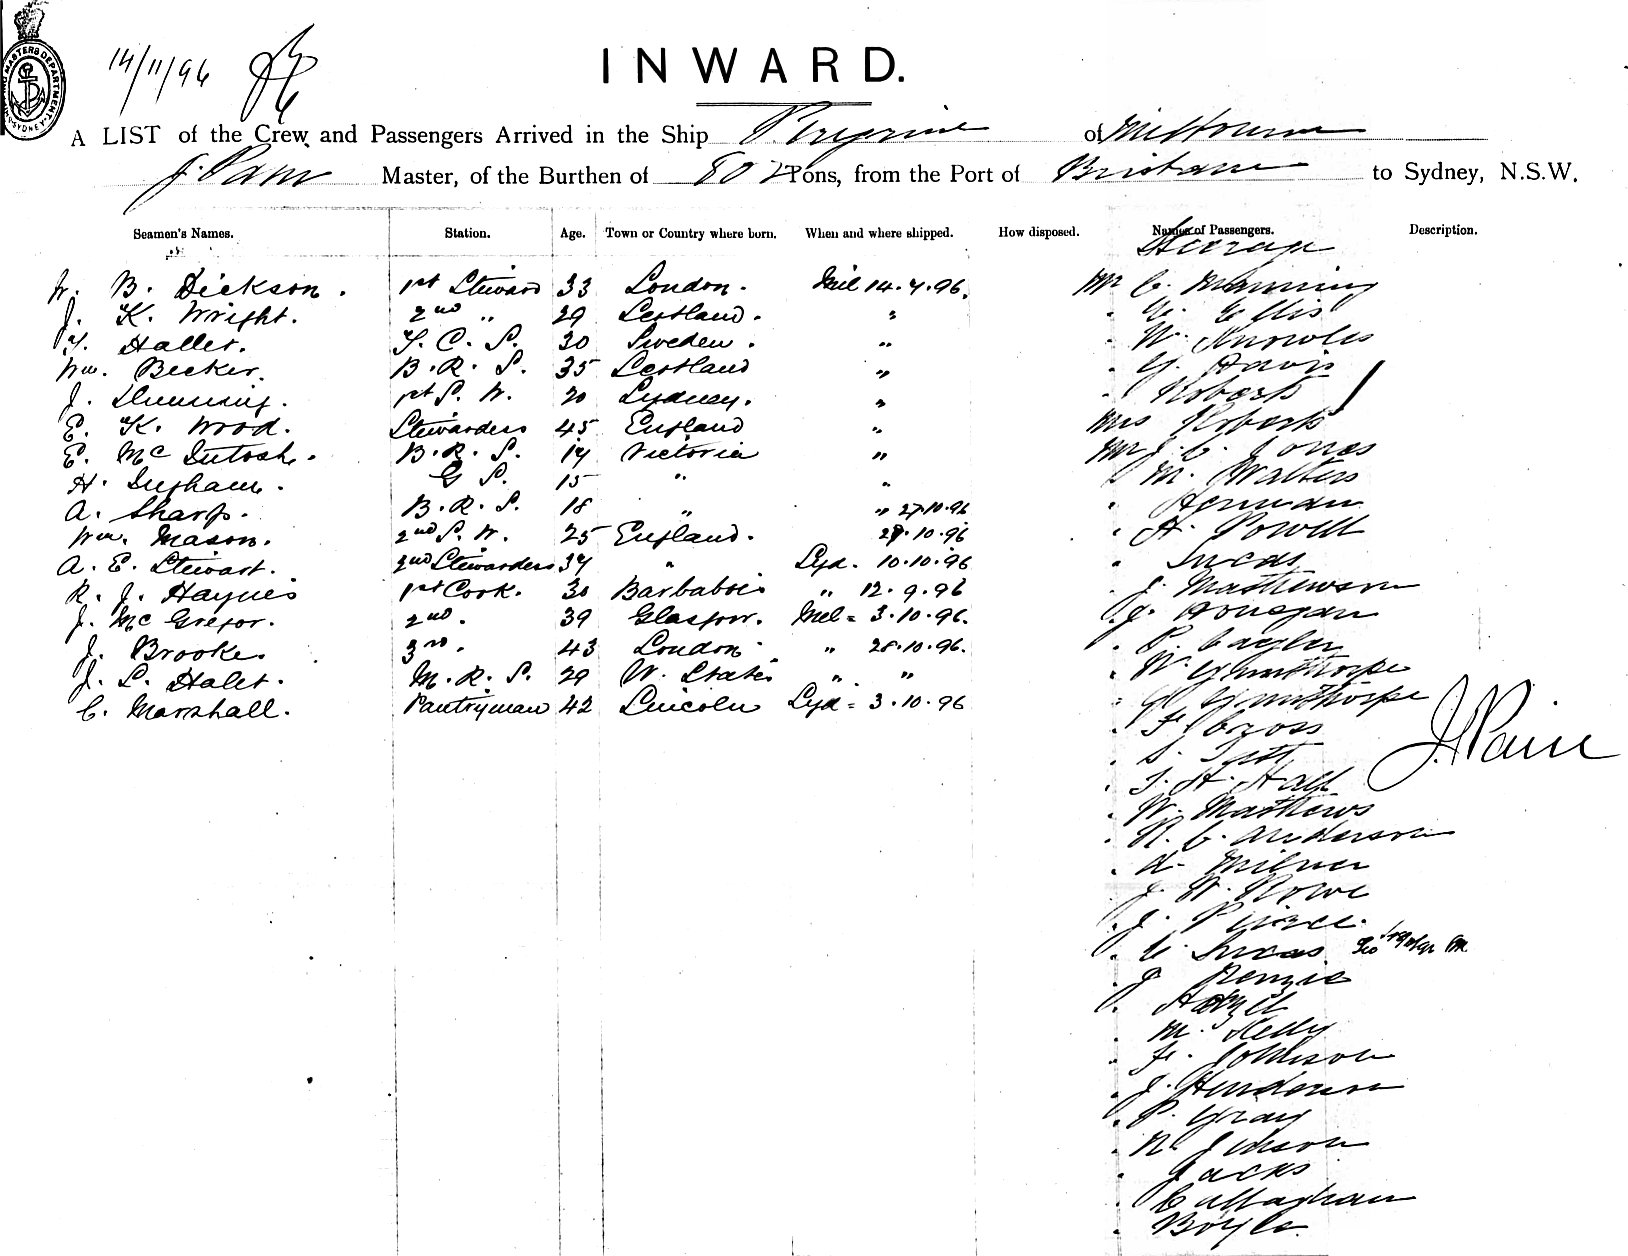 14/11/96
INWARD.
A LIST of the Crew and Passengers Arrived in the Ship Peregrine of Melbourne
J. Pain Master, of the Burthen of 802 Tons, from the Port of Brisbane to Sydney, N.S.W.
Seamen's Names. Station. Age. Town or Country where born. When and where shipped. How disposed. Names of Passengers. Description.
Steerage
W. B. Dickson. 1st Steward 33 London. Mel 14.7.96. Mr C. Manning
J. K. Wright. 2nd " 29 Scotland. " Ellis
Hallet. F. C. S. 30 Sweden. " W. Knowles
Wm. Becker. B. R. S. 35 Scotland " G. Davis
J. Dunning. 1st S. W. 20 Sydney. " Roberts
E. K. Wood. Stewardess 45 England " Mrs Roberts
E. McIntosh. B. R. S. 17 Victoria " Mr J. C. Jones
H. Ingham. G S. 15 " " M. Walters
A. Sharp. B. R. S. 18 " " 27.10.96
Wm. Mason. 2nd S. W. 25 England. 27.10.96 H. Powell
A. E. Stewart. 2nd Stewardess 37 " Syd. 10.10.96 Lucas
R. J. Haynes 1st Cook. 30 Barbadoes " 12.9.96 J. Matthewson
J. McGregor. 2nd. 39 Glasgow. Mel = 3.10.96. J. Honegan
J. Brooke. 3rd. 43 London " 28.10.96.
J. S. Halet. M. R. S. 29 U. States " " W. Gunthorpe
C. Marshall. Pantryman 42 Lincoln Syd = 3.10.96 Gunthorpe
J. Pain
F. Cross
S. Tett
T. H. Hall
W. Mathews
R. C. Anderson
A. Milner
J. W. Rowe
J. Peirce
C. Lucas
J. Renzie
M. Kelly
F. Johnson
J. Henderson
P. Gray
N. Jobson
Jacks
Callaghan
Boyle